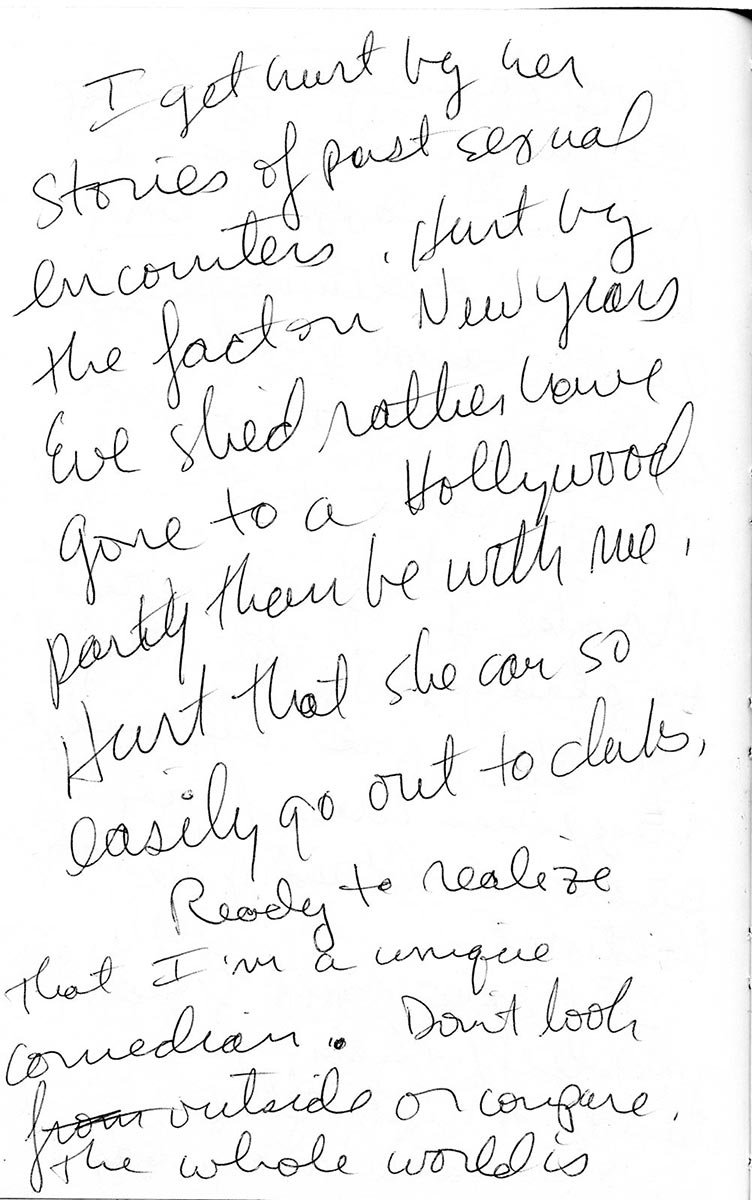 I get hurt by her
stories of past sexual
encounters. Hurt by
the fact on New years
Eve she'd rather have
gone to a Hollywood
party than be with me.
Hurt that she can so
easily go out to clubs.
Ready to realize
that I'm a unique
comedian. Don't look
from outside or compare.
the whole world is